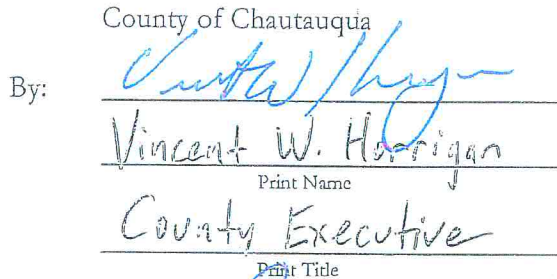 County of Chautauqua
By:
Vincent W. Horrigan
Print Name
County Executive
Print Title